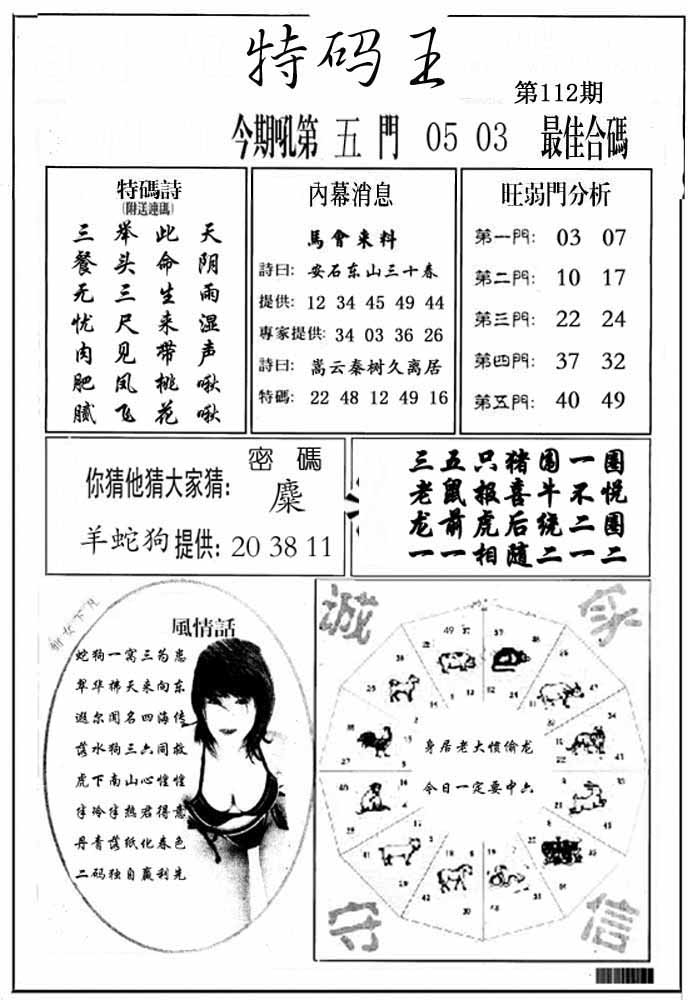 特码王
第112期
今期吼第 五 門 05 03 最佳合碼
特碼詩
(附送連碼)
三 举 此 天
餐 头 命 阴
无 三 生 雨
忧 尺 来 湿
肉 见 带 声
肥 凤 桃 啾
腻 飞 花 啾
內幕消息
馬會来料
詩曰: 安石东山三十春
提供: 12 34 45 49 44
專家提供: 34 03 36 26
詩曰: 嵩云秦树久离居
特碼: 22 48 12 49 16
旺弱門分析
第一門: 03 07
第二門: 10 17
第三門: 22 24
第四門: 37 32
第五門: 40 49
密碼
你猜他猜大家猜: 麋
羊蛇狗提供: 20 38 11
三五只猪围一圈
老鼠报喜牛不悦
龙前虎后绕二圈
一一相随二一二
風情話
蛇狗一窝三为患
翠华拂天来向东
遐尔闻名四海传
落水狗三六同救
虎下南山心惶惶
半冷半热君得意
丹青落纸化春色
二码独自赢利先
诚
信
守
身居老大惯偷龙
今日一定要中六